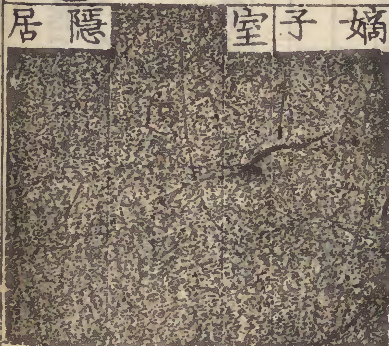 嫡子室
隱居